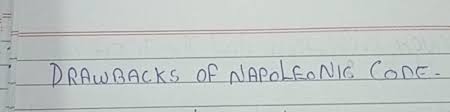 DRAWBACKS OF NAPOLEONIC CODE-